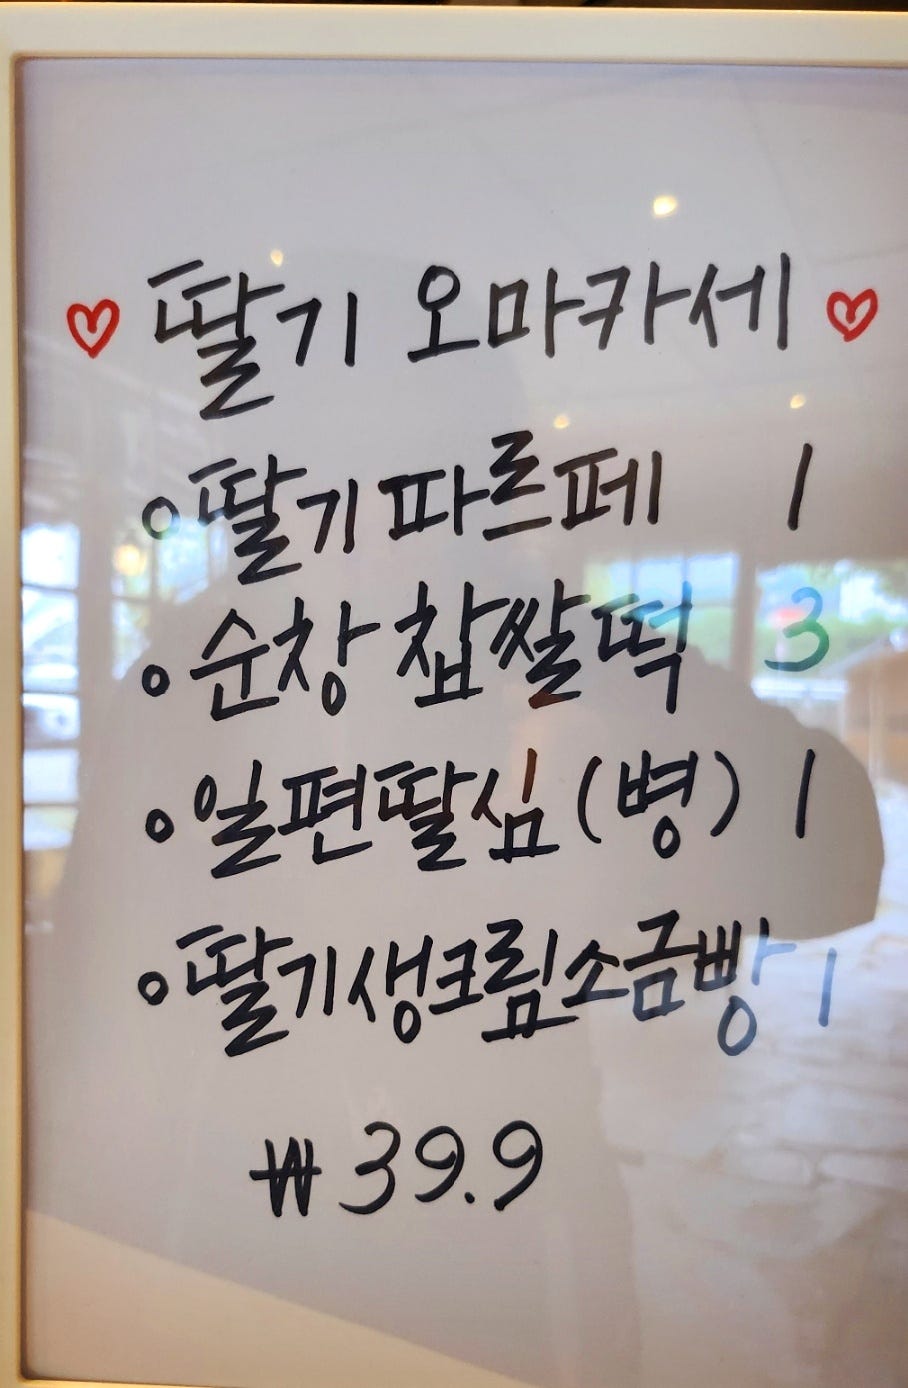 ♡ 딸기 오마카세 ♡
◦ 딸기 파르페 1
◦ 순창 찹쌀떡 3
◦ 일편딸심 (병) 1
◦ 딸기생크림소금빵 1
₩ 39.9